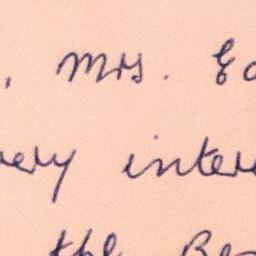 , Mrs. Ea
very inter
the Be